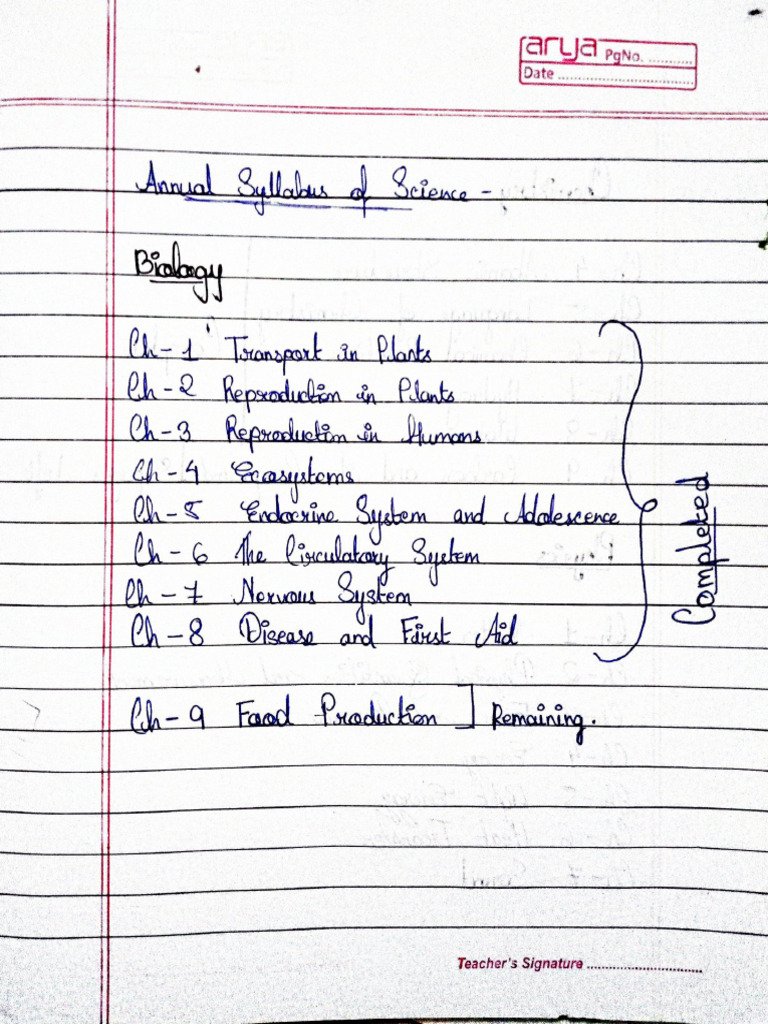 arya PgNo. ............
Date ................................
Annual Syllabus of Science -
Biology
Ch - 1 Transport in Plants
Ch - 2 Reproduction in Plants
Ch - 3 Reproduction in Humans
Ch - 4 Ecosystems
Ch - 5 Endocrine System and Adolescence
Ch - 6 The Circulatory System
Ch - 7 Nervous System
Ch - 8 Disease and First Aid
Completed
Ch - 9 Food Production ] Remaining.
Teacher's Signature ................................